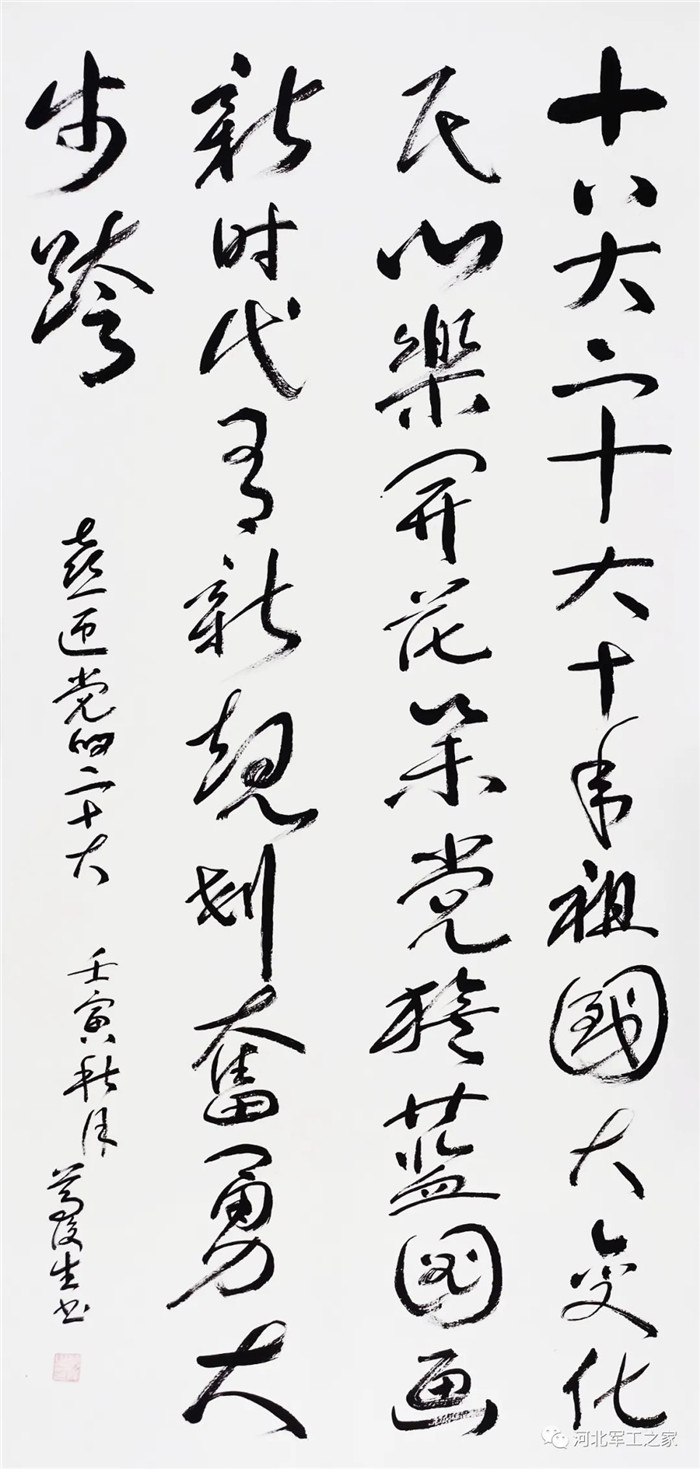 十八大二十大十年祖國大变化
民心樂開花党蓝図画
新时代有新規划奮勇大
步跨
喜迎党的二十大 壬寅秋月 俊生书
河北军工之家